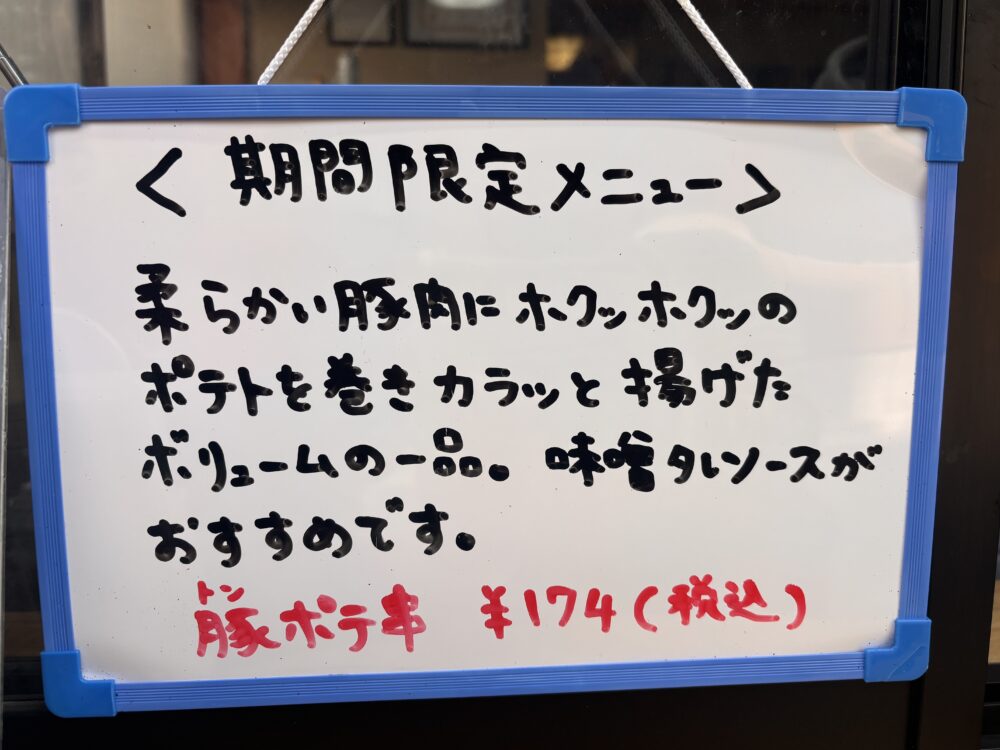 ＜期間限定メニュー＞
柔らかい豚肉にホクッホクッの
ポテトを巻きカラッと揚げた
ボリュームの一品。味噌タレソースが
おすすめです。
トン
豚ポテ串 ¥174(税込)